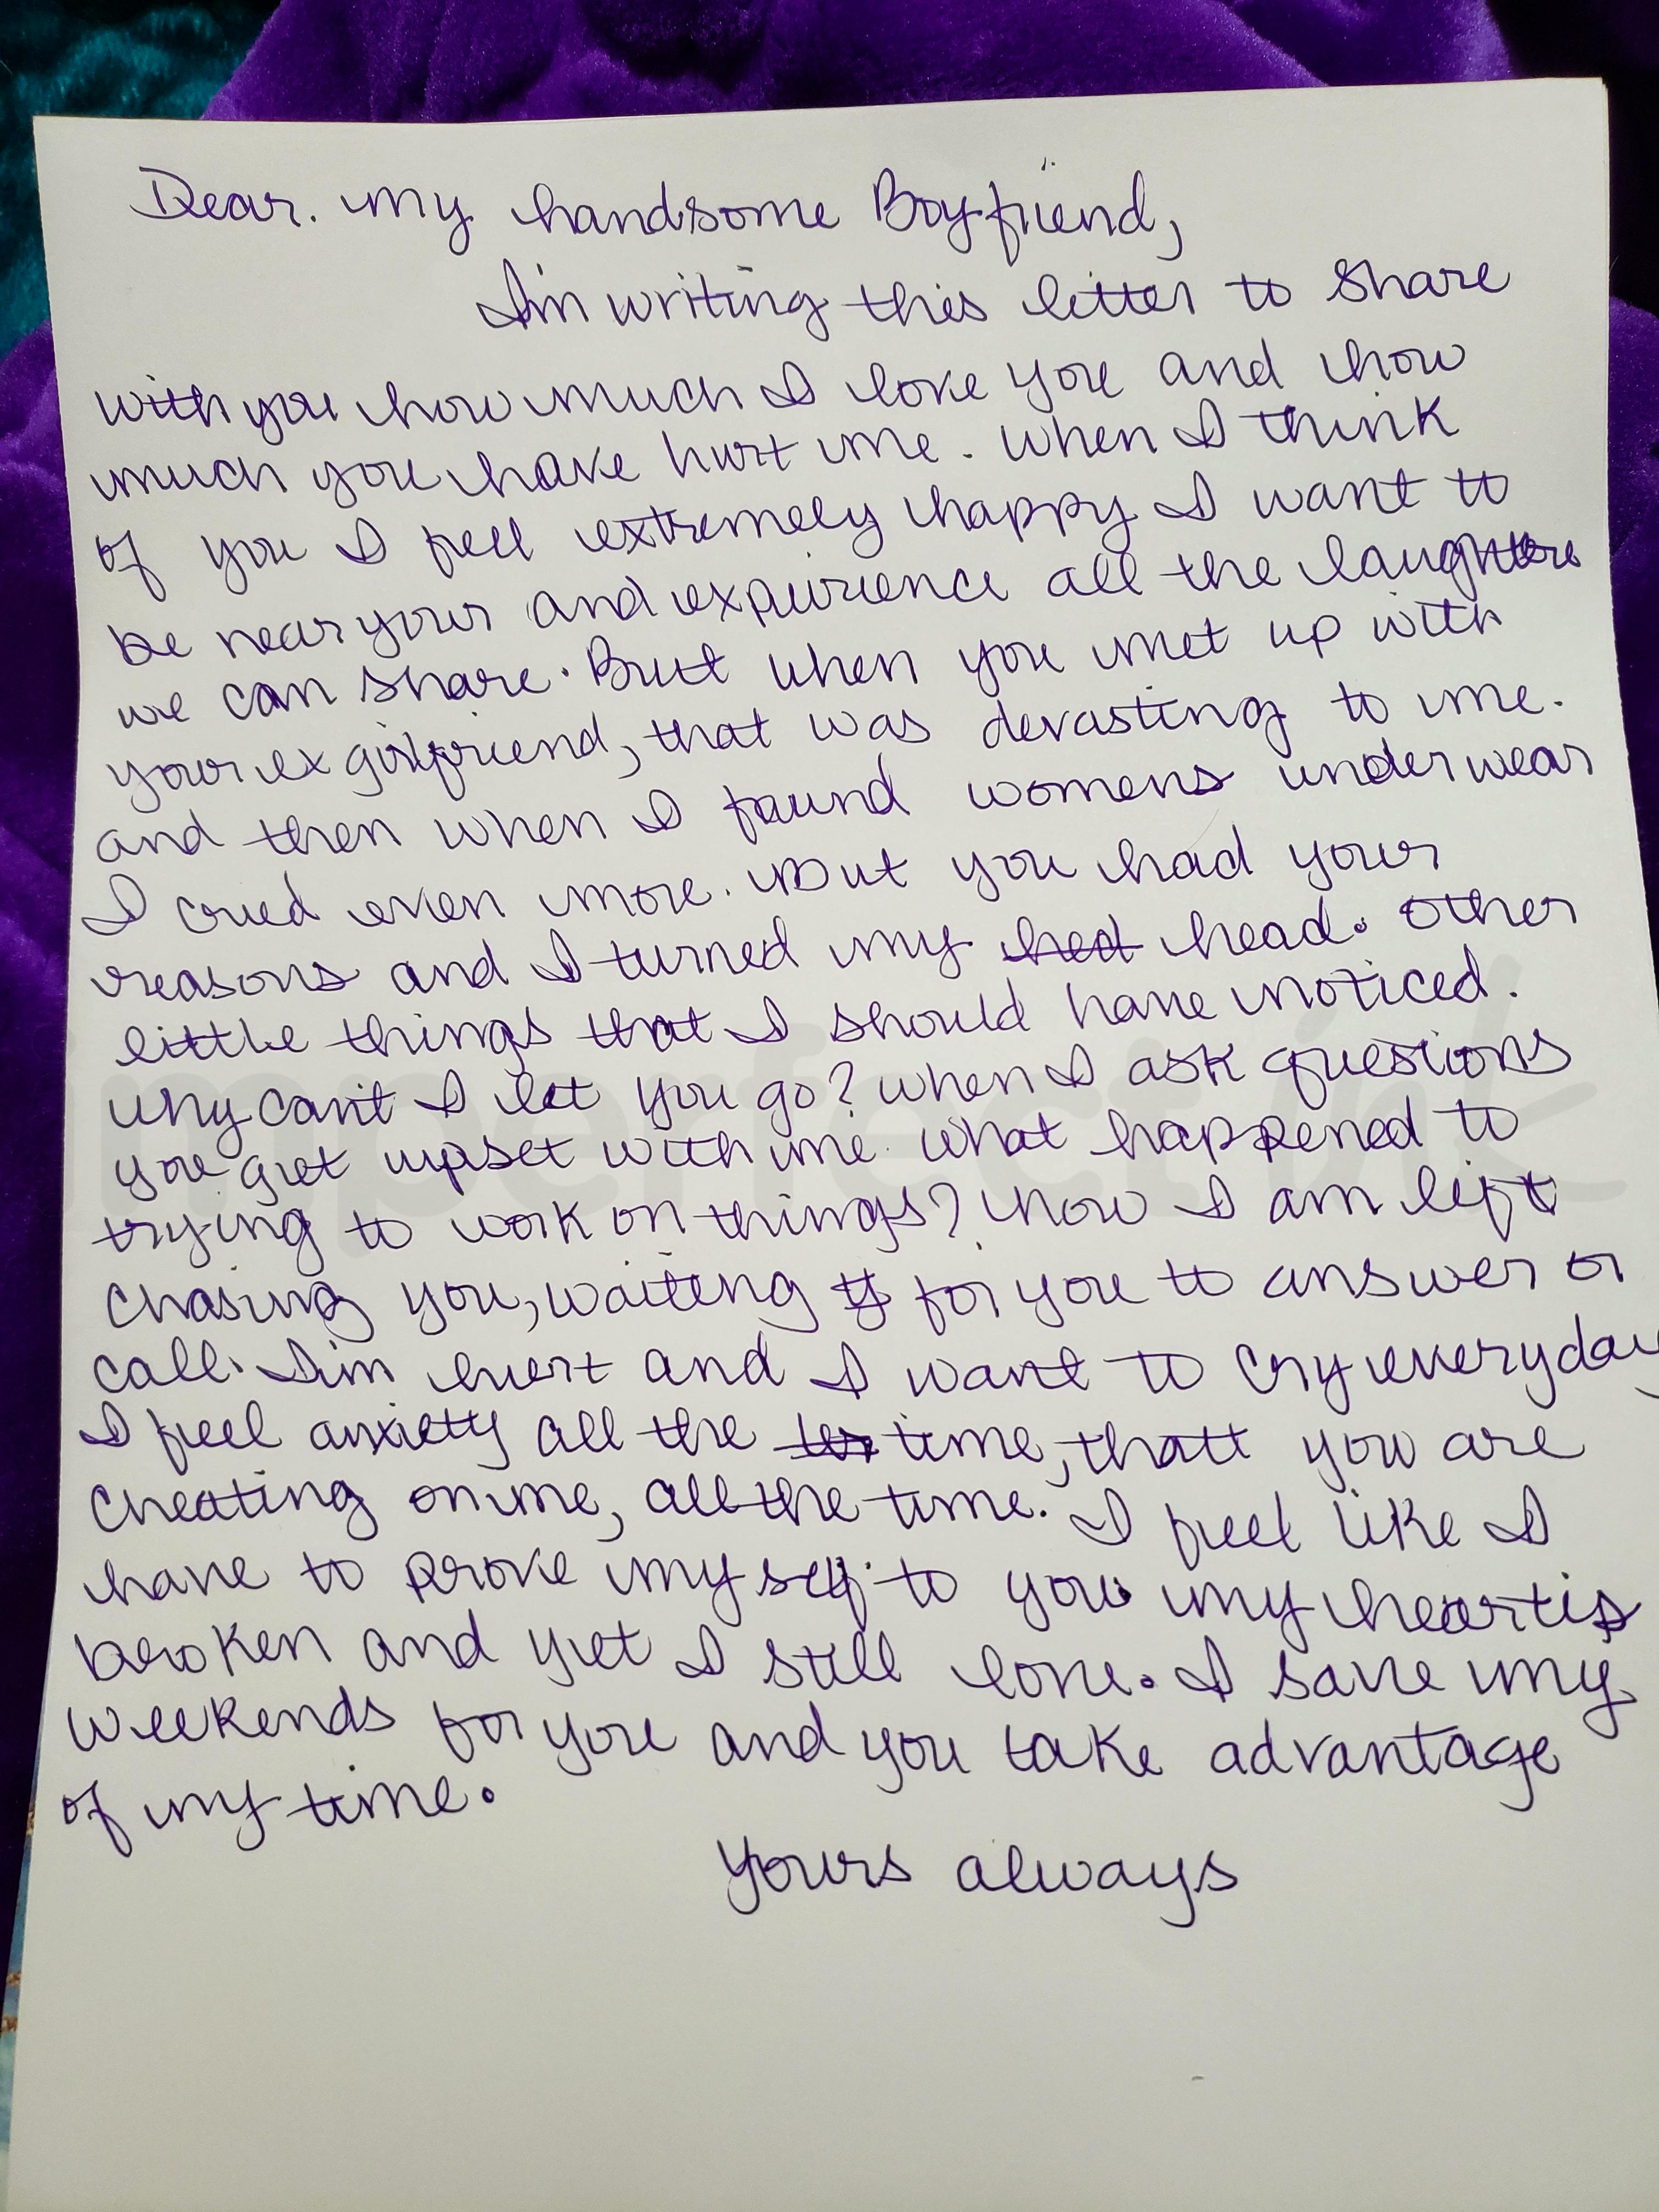 Dear. my handsome Boyfriend,
I'm writing this letter to share
with you how much I love you and how
much you have hurt me. When I think
of you I feel extremely happy I want to
be near your and expeirience all the laughters
we can share. But when you met up with
your ex girlfriend, that was devasting to me.
and then when I found womens underwear
I cried even more. But you had your
reasons and I turned my hed head. Other
little things that I should have noticed.
Why can't I let you go? When I ask questions
you get upset with me. What happened to
trying to work on things? Now I am left
chasing you, waiting for you to answer or
call. I'm huert and I want to cry everyday
I feel anxiety all the time, thatt you are
cheating on me, all the time. I feel like I
have to prove my self to you. my heart is
broken and yet I still love. I save my
weekends for you and you take advantage
of my time.
Yours always
imperfect ink